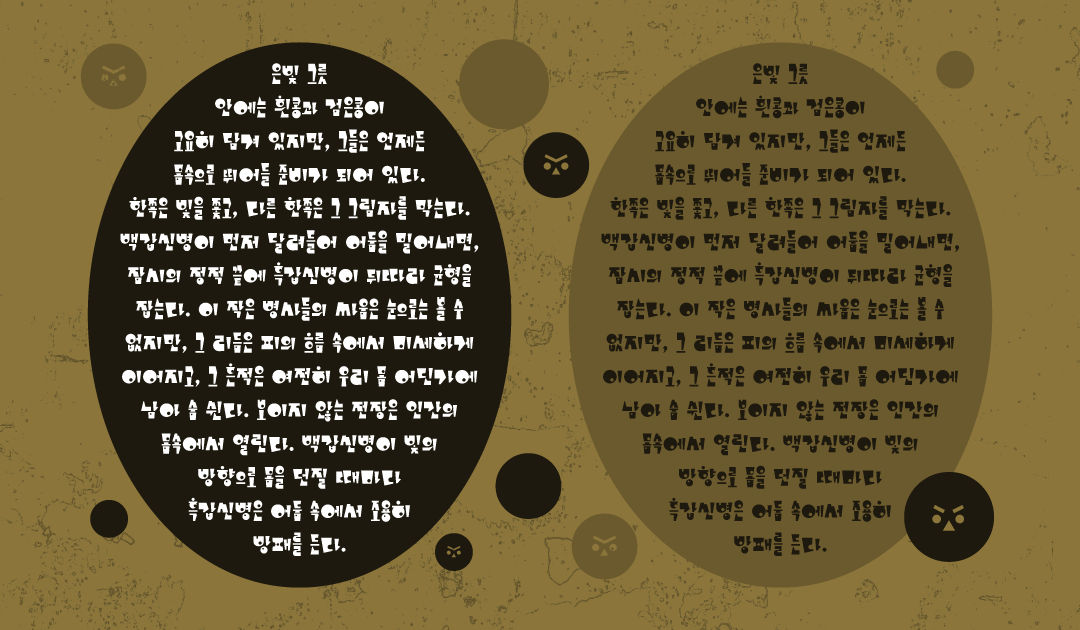 은빛 그릇
안에는 흰콩과 검은콩이
고요히 담겨 있지만, 그들은 언제든
몸속으로 뛰어들 준비가 되어 있다.
한쪽은 빛을 쫓고, 다른 한쪽은 그 그림자를 막는다.
백갑신병이 먼저 달려들어 어둠을 밀어내면,
잠시의 정적 끝에 흑갑신병이 뒤따라 균형을
잡는다. 이 작은 병사들의 싸움은 눈으로는 볼 수
없지만, 그 리듬은 피의 흐름 속에서 미세하게
이어지고, 그 흔적은 여전히 우리 몸 어딘가에
남아 숨 쉰다. 보이지 않는 전장은 인간의
몸속에서 열린다. 백갑신병이 빛의
방향으로 몸을 던질 때마다
흑갑신병은 어둠 속에서 조용히
방패를 든다.
은빛 그릇
안에는 흰콩과 검은콩이
고요히 담겨 있지만, 그들은 언제든
몸속으로 뛰어들 준비가 되어 있다.
한쪽은 빛을 쫓고, 다른 한쪽은 그 그림자를 막는다.
백갑신병이 먼저 달려들어 어둠을 밀어내면,
잠시의 정적 끝에 흑갑신병이 뒤따라 균형을
잡는다. 이 작은 병사들의 싸움은 눈으로는 볼 수
없지만, 그 리듬은 피의 흐름 속에서 미세하게
이어지고, 그 흔적은 여전히 우리 몸 어딘가에
남아 숨 쉰다. 보이지 않는 전장은 인간의
몸속에서 열린다. 백갑신병이 빛의
방향으로 몸을 던질 때마다
흑갑신병은 어둠 속에서 조용히
방패를 든다.